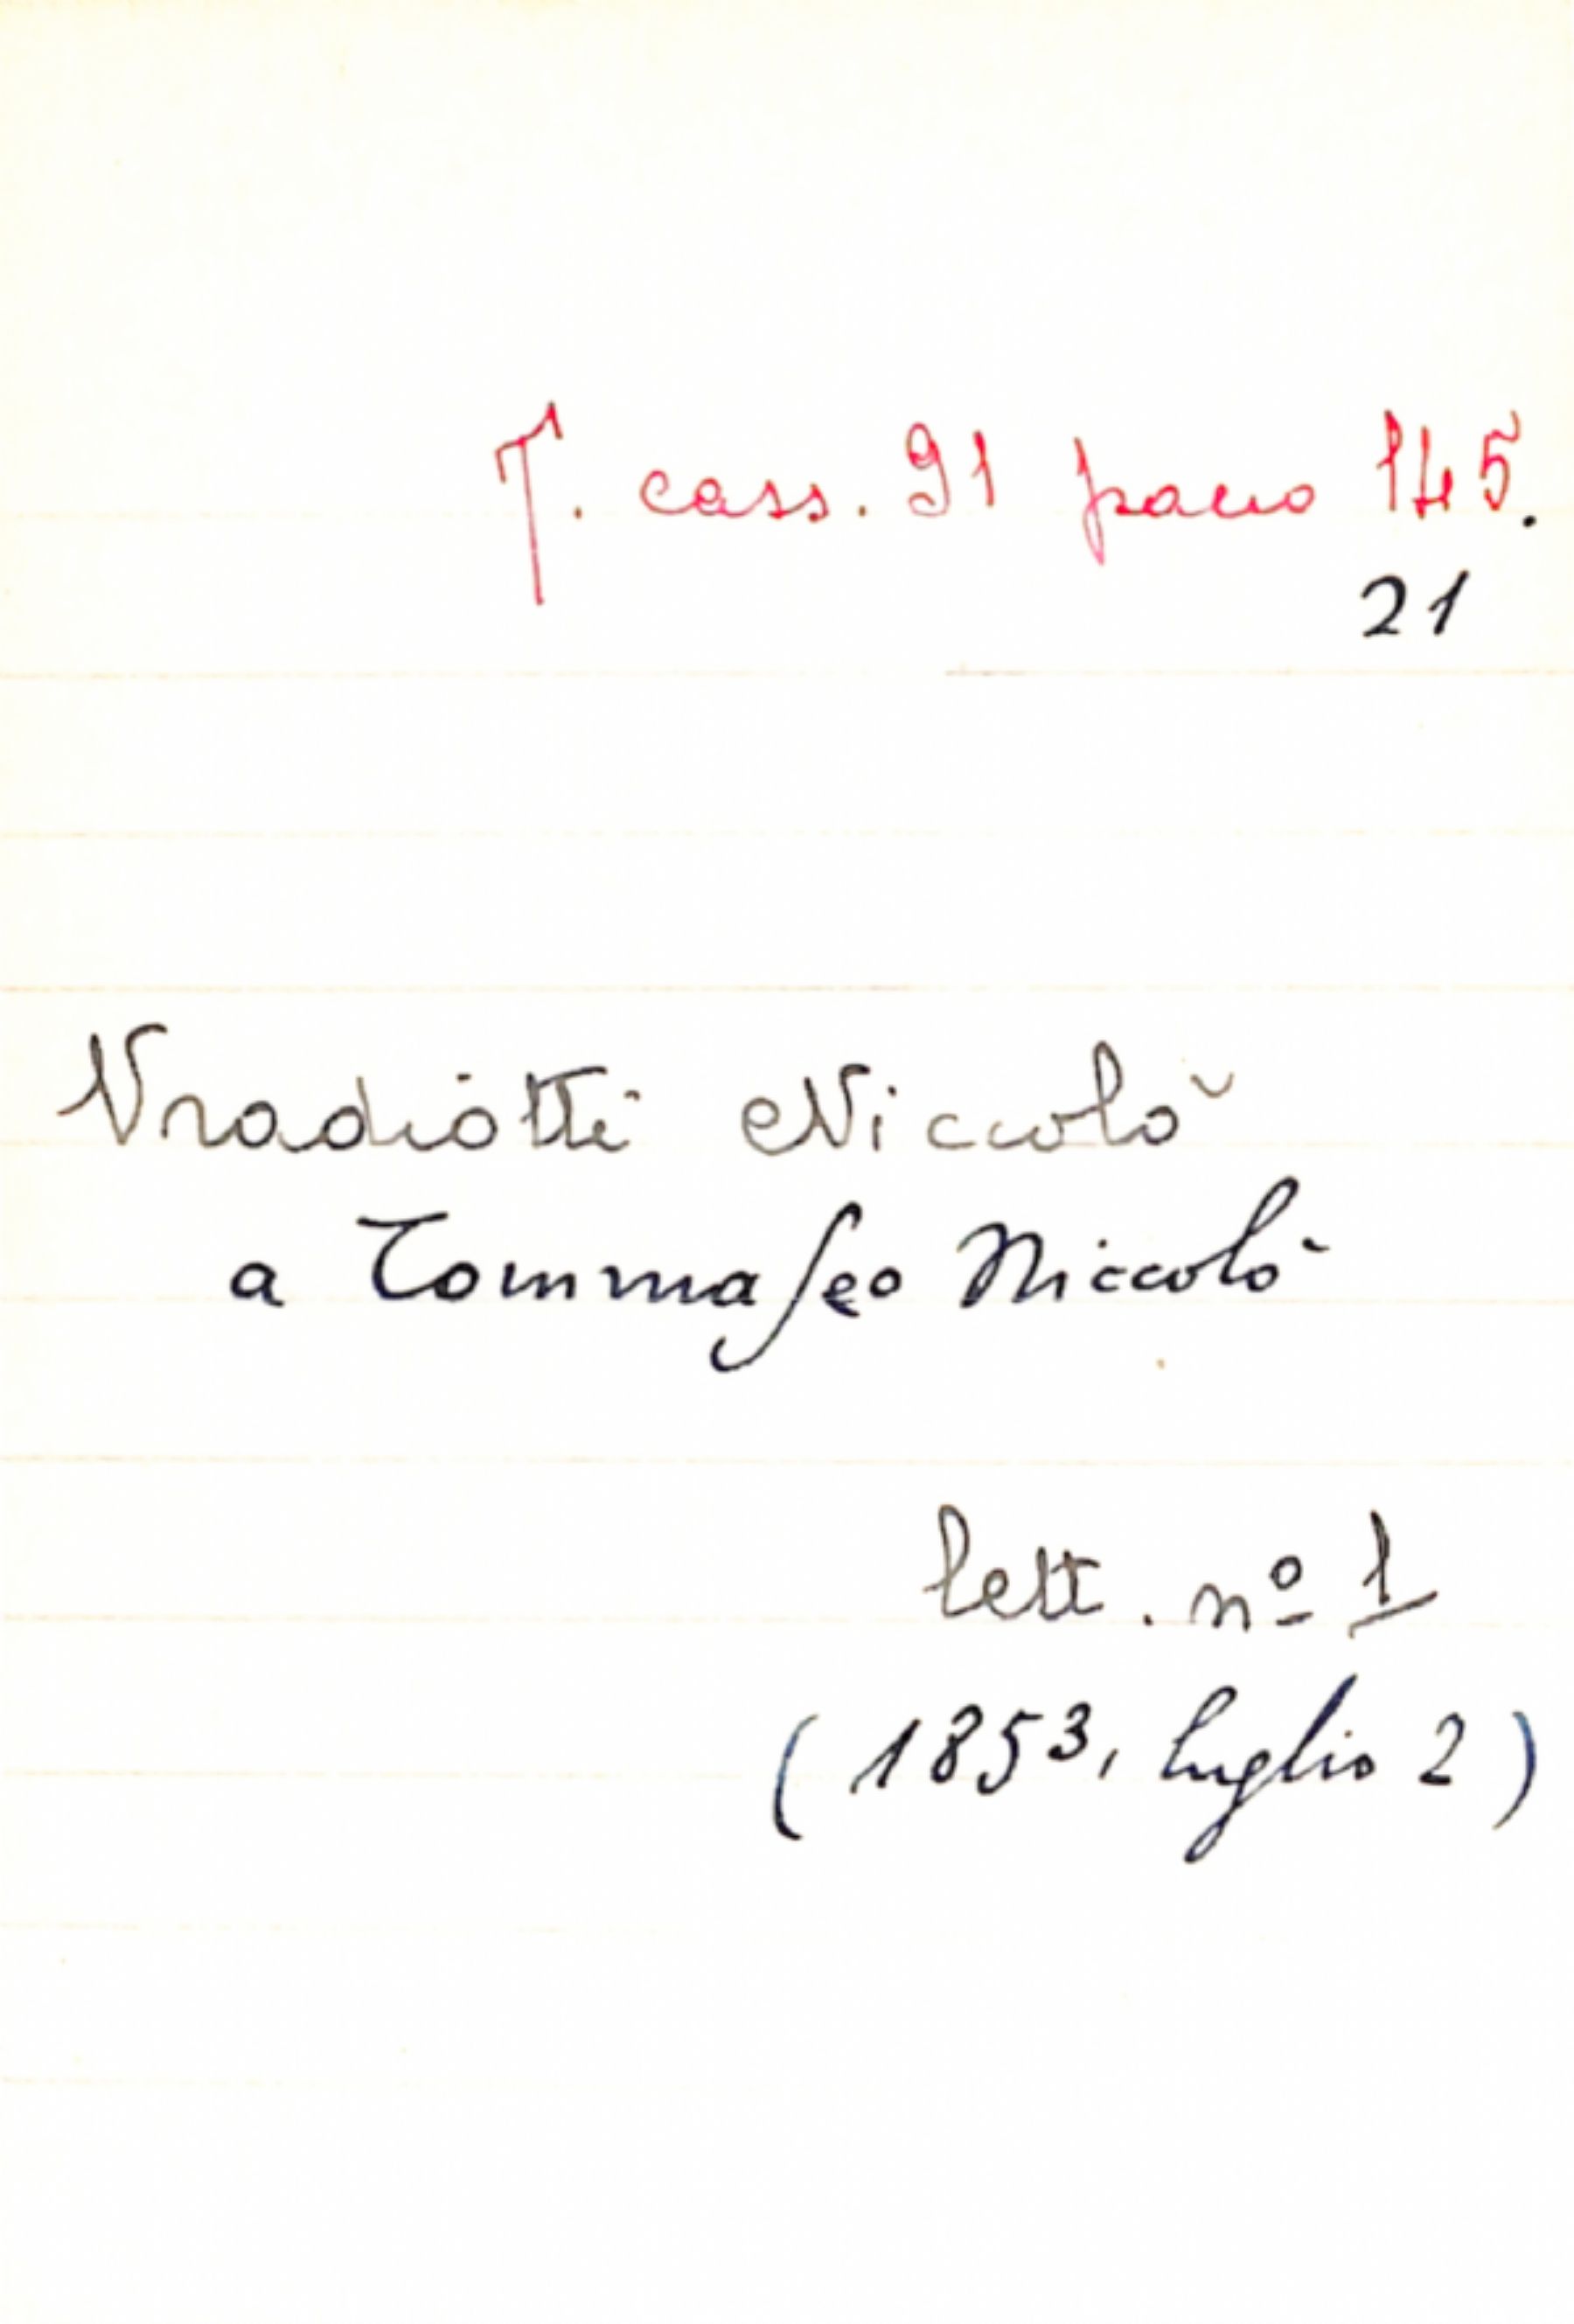 T. cass. 91 pacco 145.
21
Vradiotti Niccolò
a Tommaseo Niccolò
lett. nº 1
(1853, luglio 2)